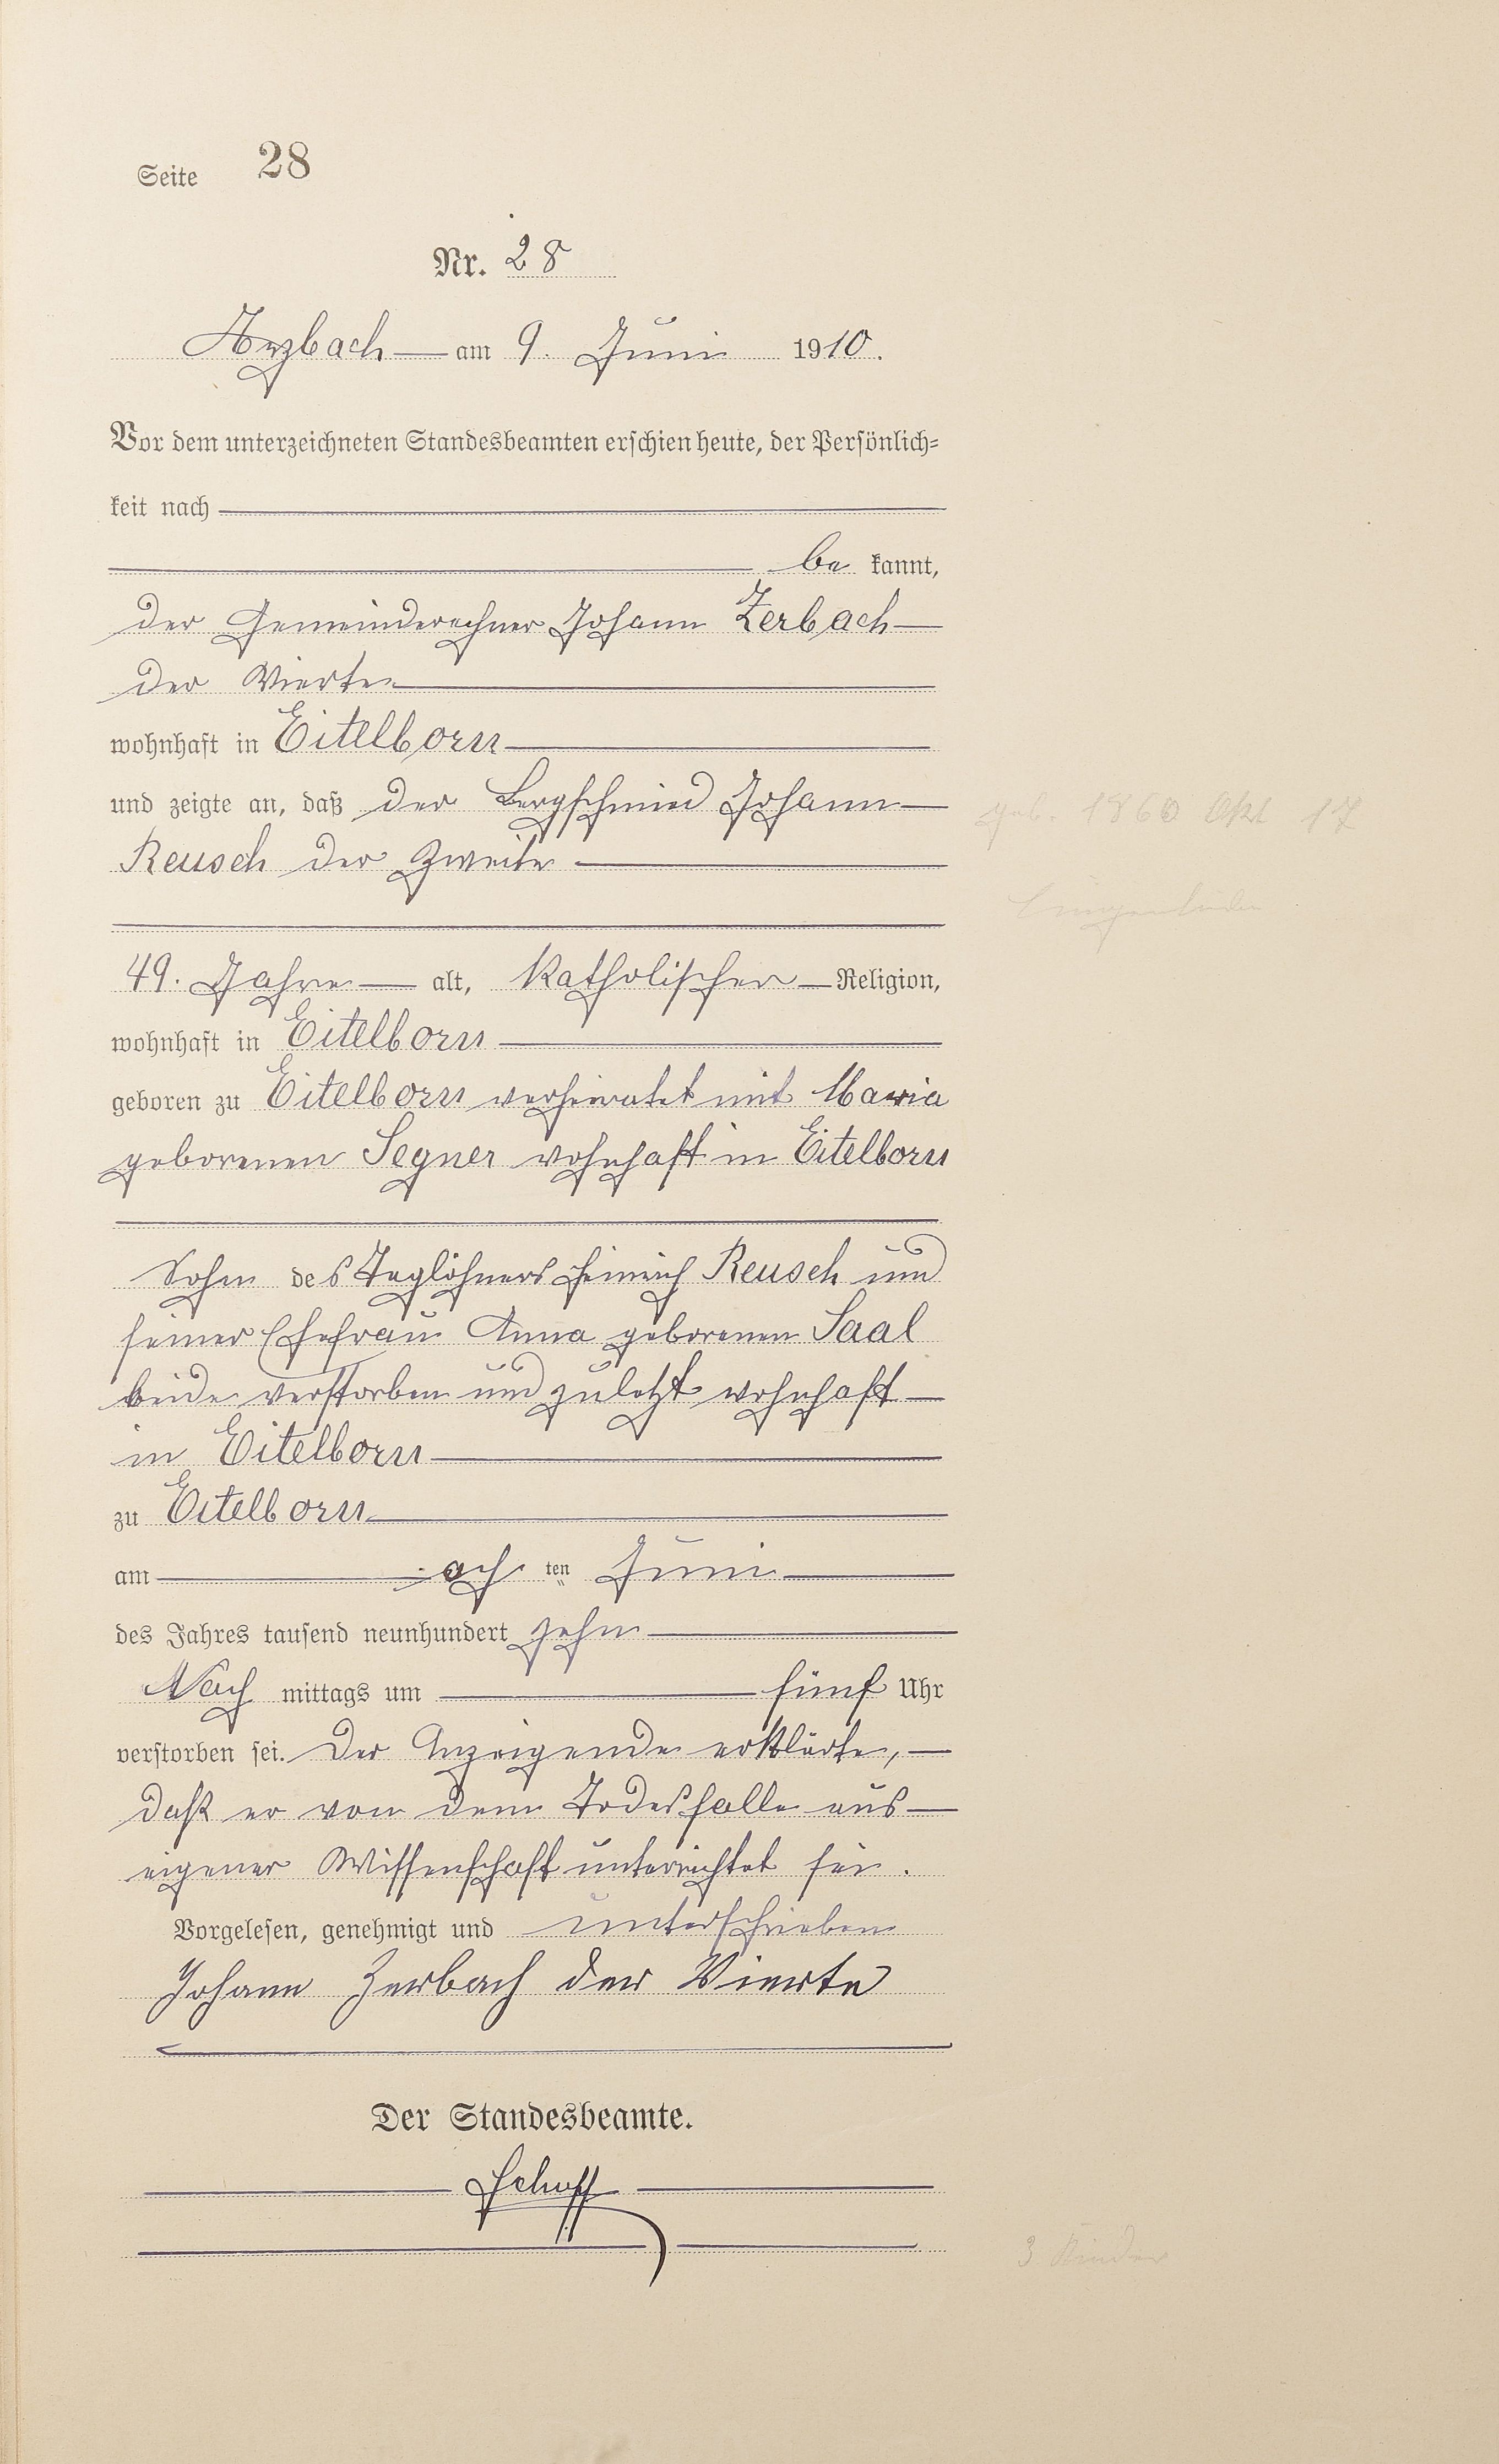 Seite 28
Nr. 28
Arzbach am 9. Juni 1910.
Vor dem unterzeichneten Standesbeamten erschien heute, der Persönlich=
keit nach
be kannt,
der Gemeinderechner Johann Zerbach
der Vierte
wohnhaft in Eitelborn
und zeigte an, daß der Bergschmied Johann
Reusch der Zweite
49. Jahre alt, katholischer Religion,
wohnhaft in Eitelborn
geboren zu Eitelborn verheiratet mit Maria
geborenen Segner wohnhaft in Eitelborn
Sohn des Taglöhners Heinrich Reusch und
seiner Ehefrau Anna geborenen Saal
beide verstorben und zuletzt wohnhaft
in Eitelborn
zu Eitelborn
am ach ten Juni
des Jahres tausend neunhundert zehn
Nach mittags um fünf Uhr
verstorben sei. Der Anzeigende erklärte,
daß er von dem Todesfalle aus
eigener Wissenschaft unterrichtet sei.
Vorgelesen, genehmigt und unterschrieben
Johann Zerbach der Vierte
Der Standesbeamte.
geb. 1860 Okt 17
Lungenleiden
3 Kinder